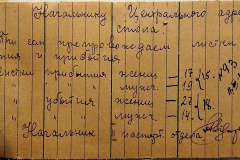 Начальнику Центрального адр.
стола
При сем препровождаем листки
и прибытия
Листки прибытия женщ. — 17
" " мужч. — 19
" убытия женщ. — 27
" " мужч. — 14
Начальник паспорт. отдела